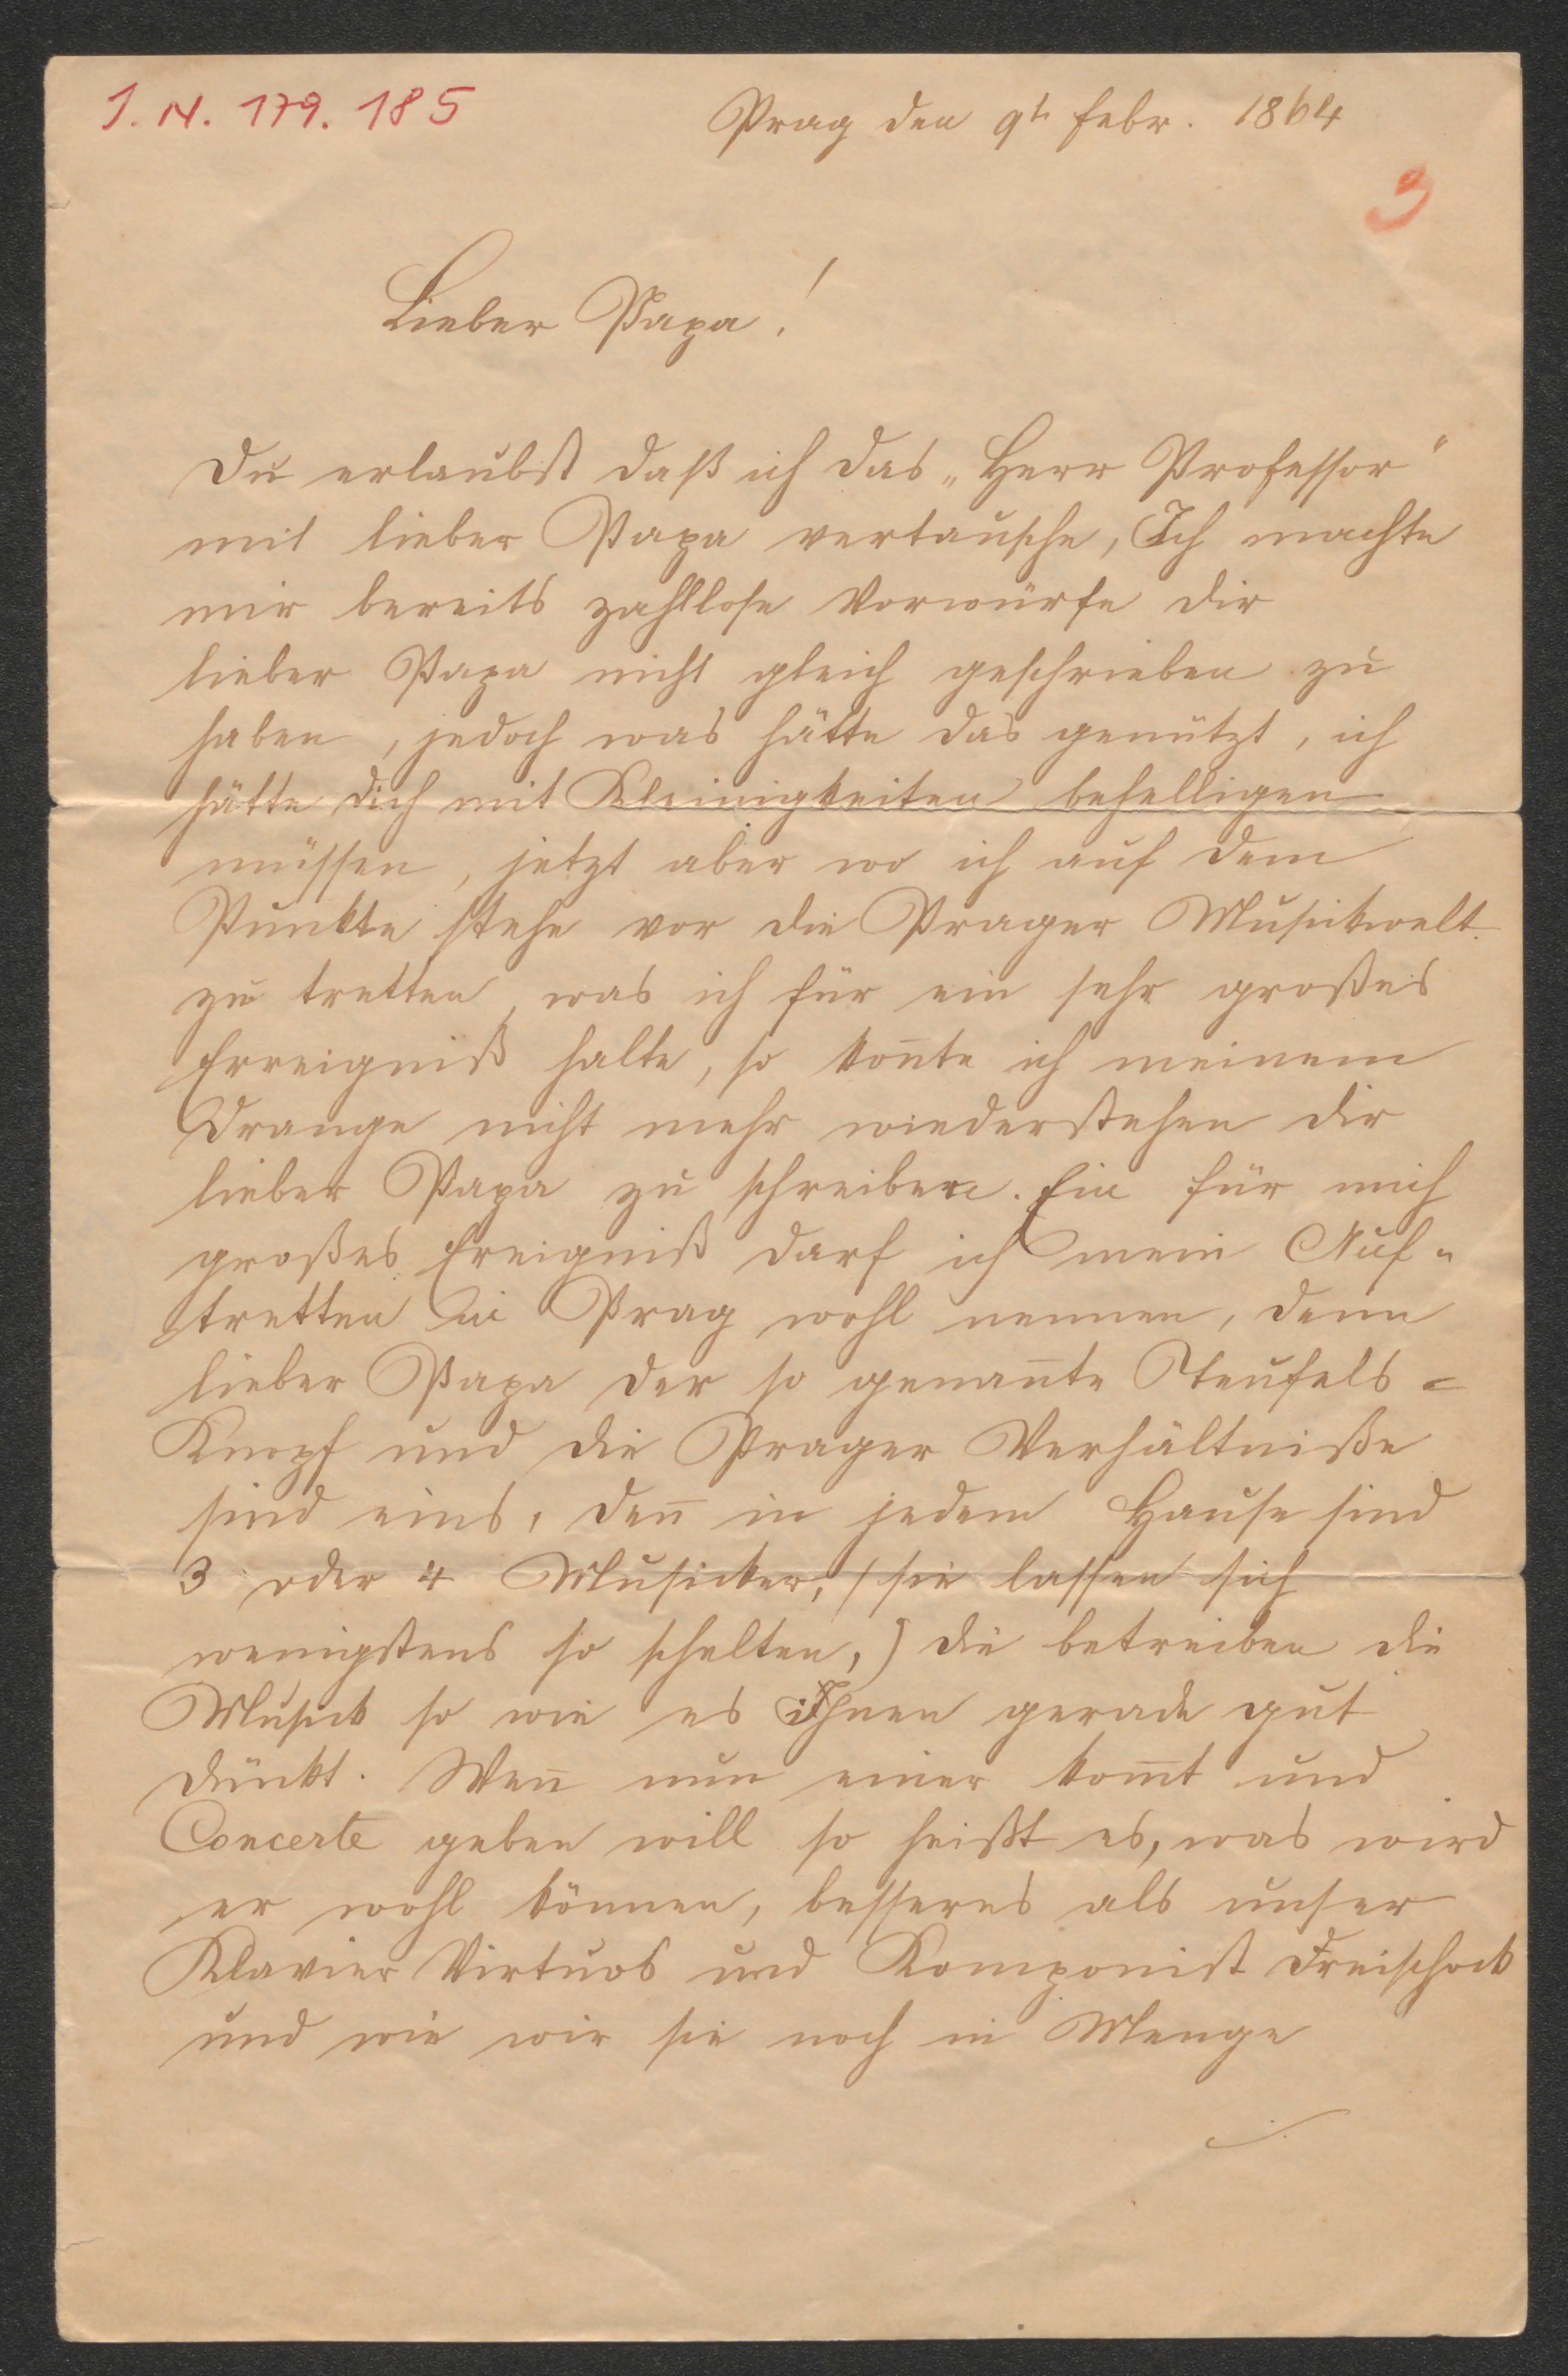 I. N. 179. 185
Prag den 9t Febr. 1864
3
Lieber Papa!
Du erlaubst daß ich das „Herr Professor"
mit lieber Papa vertausche, Ich machte
mir bereits zahllose Vorwürfe dir
lieber Papa nicht gleich geschrieben zu
haben, jedoch was hätte das genützt, ich
hätte dich mit Kleinigkeiten behelligen
müssen, jetzt aber wo ich auf dem
Punkte stehe vor die Prager Musickwelt
zu tretten, was ich für ein sehr großes
Erreigniß halte, so kon̄te ich meinem
Drange nicht mehr wiederstehen dir
lieber Papa zu schreiben. Ein für mich
großes Ereigniß darf ich mein Auf-
tretten in Prag wohl nennen, denn
lieber Papa der so genan̄te Teufels =
Knopf und die Prager Verhältniße
sind eins, den̄ in jedem Hause sind
3 oder 4 Musicker, (sie lassen sich
wenigstens so schelten,) die betreiben die
Musick so wie es Ihnen gerade gut
dünkt. Wen̄ nun einer kom̄t und
Concerte geben will so heißt es, was wird
er wohl können, besseres als unser
Klavier Virtuos und Komponist Dreischock
und wie wir sie noch in Menge